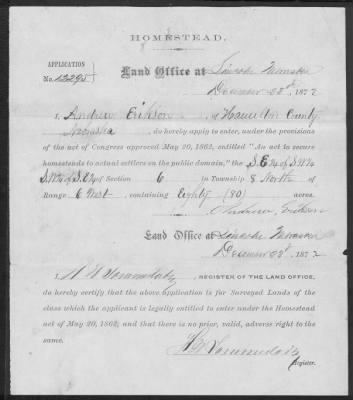 HOMESTEAD.
APPLICATION
No. 12295
Land Office at Lincoln Nebraska
December 28th, 1872
I, Andrew Erikson, of Hamilton County
Nebraska do hereby apply to enter, under the provisions
of the act of Congress approved May 20, 1862, entitled "An act to secure
homesteads to actual settlers on the public domain," the S.E¼ of S.W¼
S.W¼ of S.E¼ of Section 6 in Township 8 North of
Range 6 West, containing Eighty (80) acres.
Andrew Erikson
Land Office at Lincoln Nebraska
December 28th, 1872
I, REGISTER OF THE LAND OFFICE,
do hereby certify that the above application is for Surveyed Lands of the
class which the applicant is legally entitled to enter under the Homestead
act of May 20, 1862, and that there is no prior, valid, adverse right to the
same.
Register.